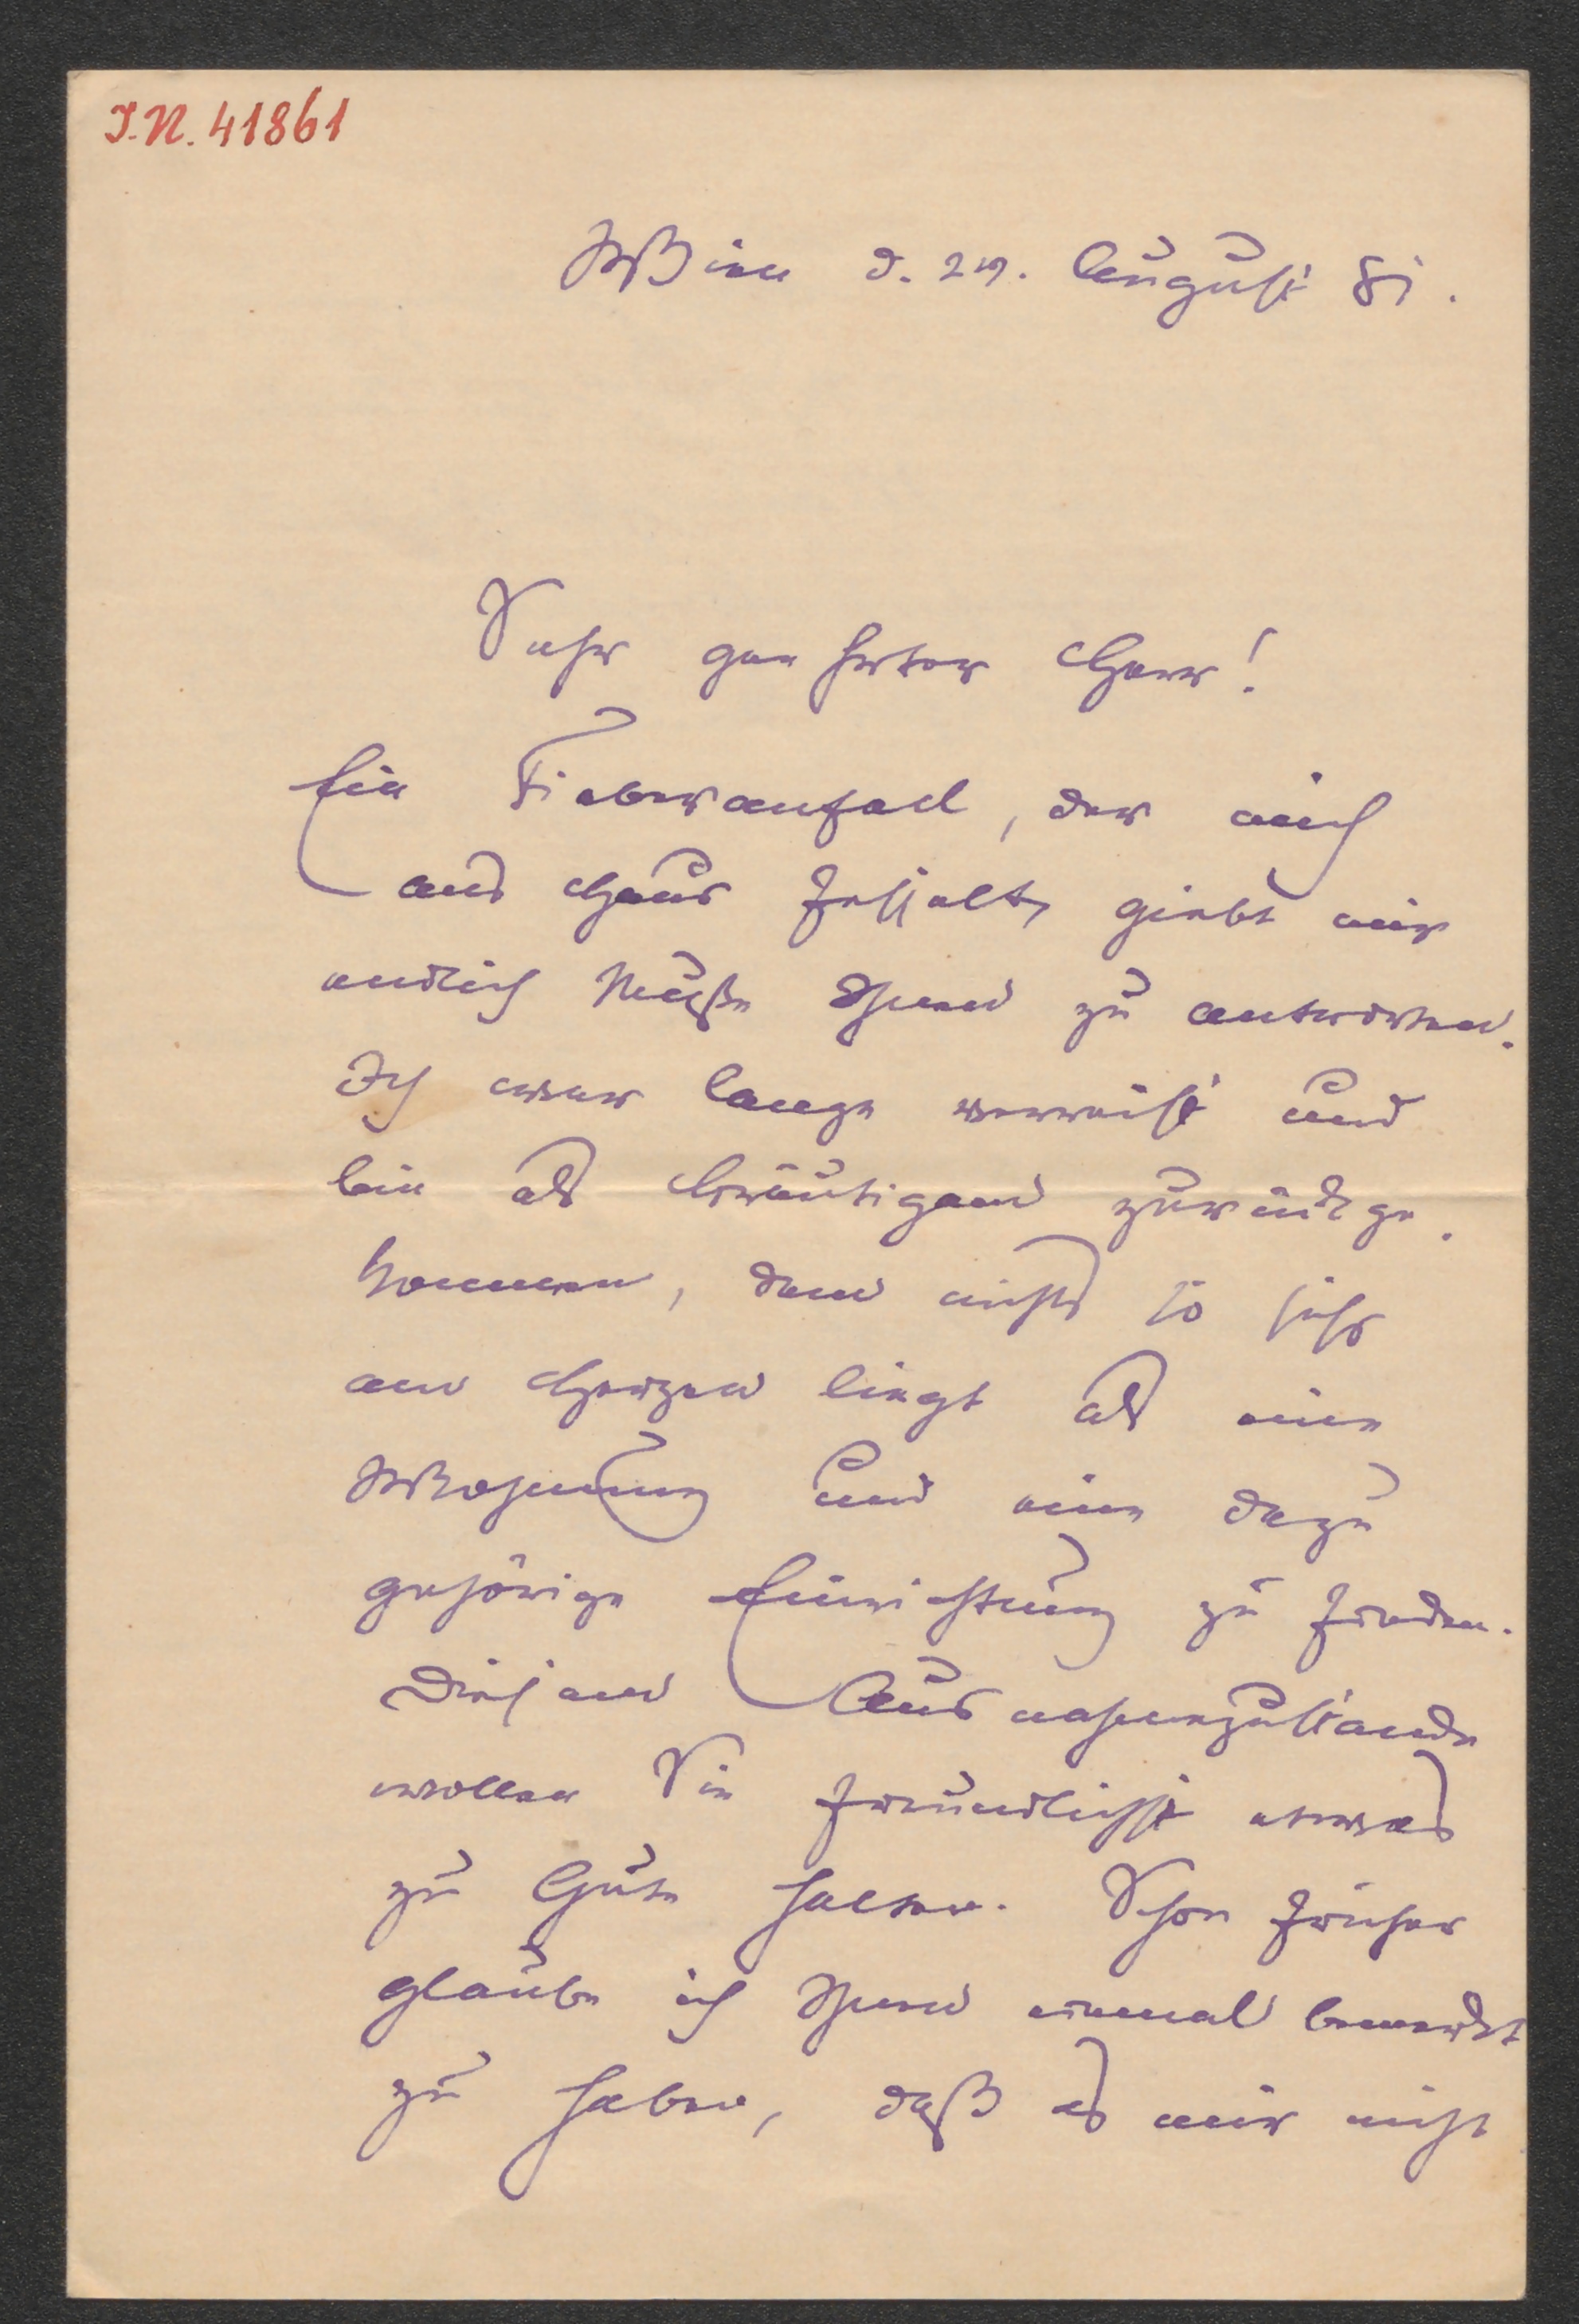 I.N. 41861
Wien d. 29. August 81.
Sehr geehrter Herr!
Ein Fieberanfall, der mich
ans Haus fesselt, giebt mir
endlich Muße Ihnen zu antworten.
Ich war lange verreist und
bin als Bräutigam zurückge-
kommen, dem nichts so sehr
am Herzen liegt als eine
Wohnung und eine dazu
gehörige Einrichtung zu finden.
Diesem Ausnahmezustande
wollen Sie freundlichst etwas
zu Gute halten. Schon früher
glaube ich Ihnen einmal bemerkt
zu haben, daß es mir nicht